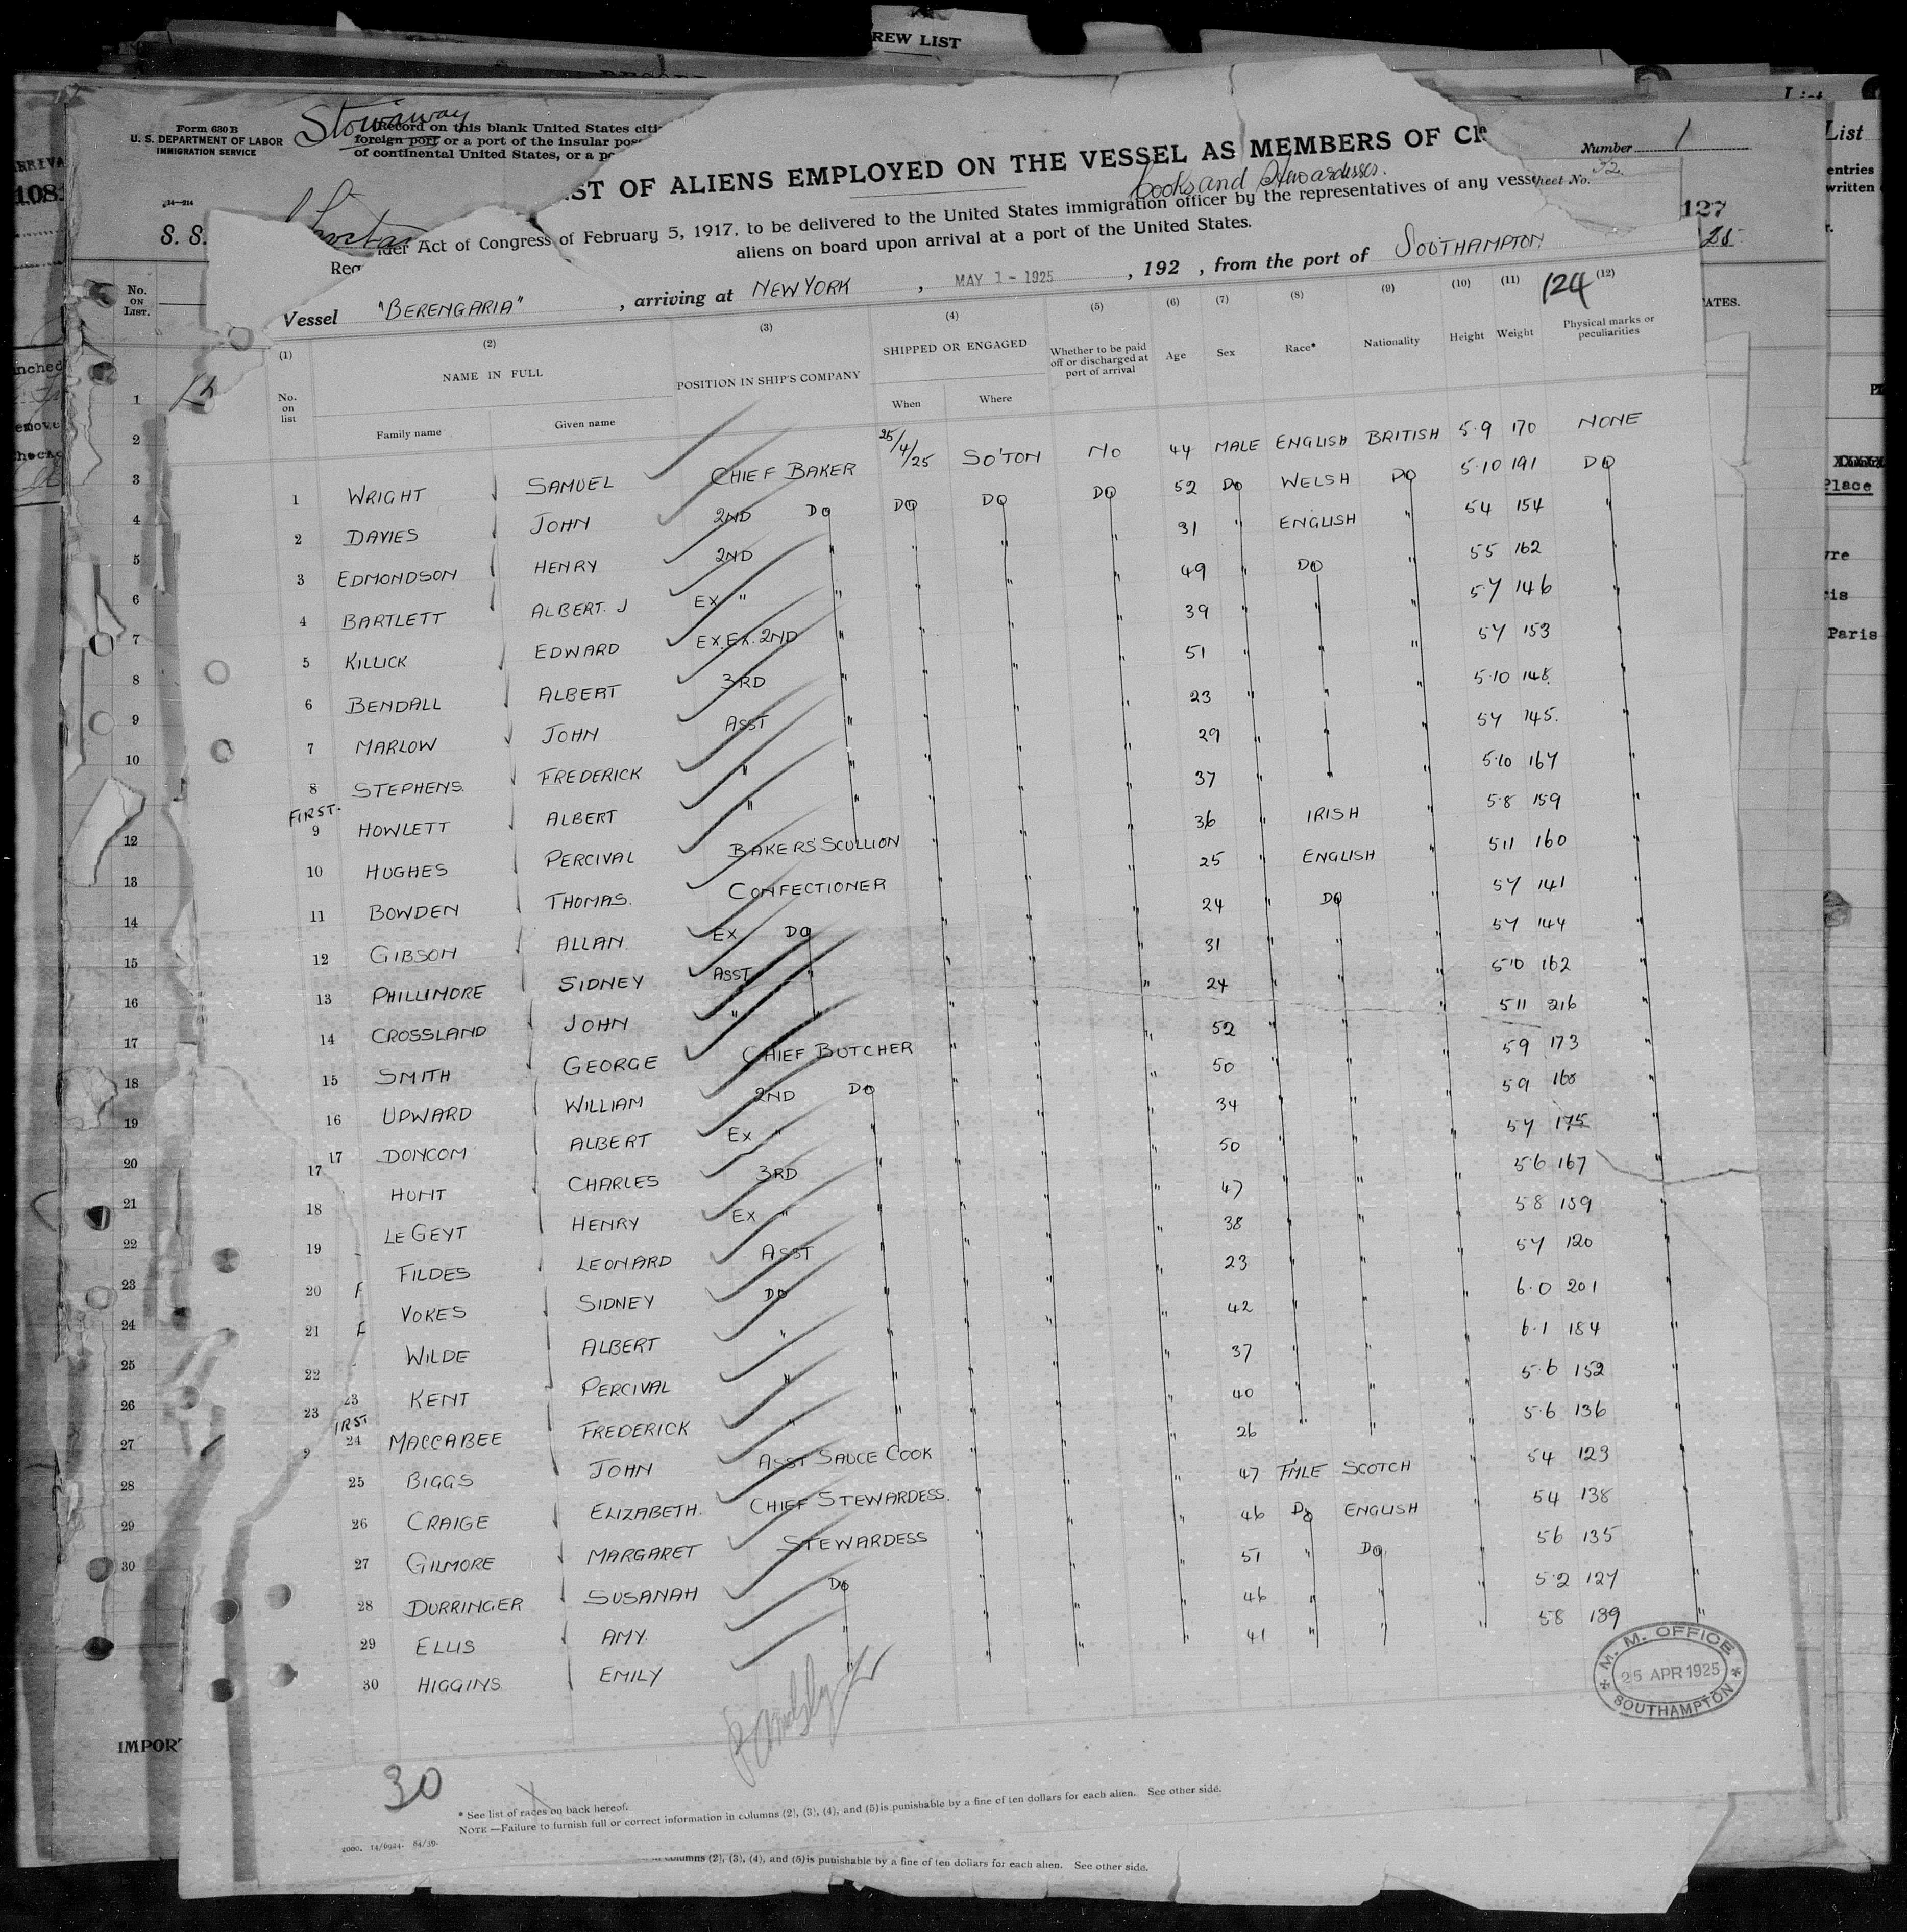 REW LIST
Form 630 B
U. S. DEPARTMENT OF LABOR
IMMIGRATION SERVICE
Stowaway
(Record on this blank United States citi
foreign port or a port of the insular pos
of continental United States, or a po
Number 1
Sheet No. 32.
IST OF ALIENS EMPLOYED ON THE VESSEL AS MEMBERS OF CR
Cooks and Stewardesses.
S. S.
Req
der Act of Congress of February 5, 1917, to be delivered to the United States immigration officer by the representatives of any vesse
aliens on board upon arrival at a port of the United States.
Vessel "BERENGARIA", arriving at NEW YORK, MAY 1 - 1925, 192 , from the port of SOUTHAMPTON
124
(1) (2) (3) (4) (5) (6) (7) (8) (9) (10) (11) (12)
No. on list
NAME IN FULL
Family name Given name
POSITION IN SHIP'S COMPANY
SHIPPED OR ENGAGED
When Where
Whether to be paid off or discharged at port of arrival
Age Sex Race* Nationality Height Weight Physical marks or peculiarities
1 WRIGHT SAMUEL CHIEF BAKER 25/4/25 SO'TON NO 44 MALE ENGLISH BRITISH 5·9 170 NONE
2 DAVIES JOHN 2ND DO DO DO DO 52 DO WELSH DO 5·10 191 DO
3 EDMONDSON HENRY 2ND " " " " 31 " ENGLISH " 54 154 "
4 BARTLETT ALBERT. J EX " " " " " 49 " DO " 55 162 "
5 KILLICK EDWARD EX.EX. 2ND " " " " 39 " " " 57 146 "
6 BENDALL ALBERT 3RD " " " " 51 " " " 57 153 "
7 MARLOW JOHN ASST " " " " 23 " " " 5·10 148 "
8 STEPHENS. FREDERICK " " " " " 29 " " " 57 145. "
FIRST-
9 HOWLETT ALBERT " " " " " 37 " " " 5·10 167 "
10 HUGHES PERCIVAL BAKERS SCULLION " " " 36 " IRISH " 5·8 159 "
11 BOWDEN THOMAS. CONFECTIONER " " " 25 " ENGLISH " 511 160 "
12 GIBSON ALLAN EX DO " " " 24 " DO " 57 141 "
13 PHILLIMORE SIDNEY ASST " " " " 31 " " " 57 144 "
14 CROSSLAND JOHN " " " " " 24 " " " 510 162 "
15 SMITH GEORGE CHIEF BUTCHER " " " 52 " " " 511 216 "
16 UPWARD WILLIAM 2ND DO " " " 50 " " " 59 173 "
17 DONCOM ALBERT EX " " " " " 34 " " " 59 160 "
18 HUNT CHARLES 3RD " " " " 50 " " " 57 175 "
19 LE GEYT HENRY EX " " " " " 47 " " " 5·6 167 "
20 FILDES LEONARD ASST " " " " 38 " " " 58 159 "
21 VOKES SIDNEY DO " " " " 23 " " " 57 120 "
22 WILDE ALBERT " " " " " 42 " " " 6·0 201 "
23 KENT PERCIVAL " " " " " 37 " " " 6·1 184 "
IRST
24 MACCABEE FREDERICK " " " " " 40 " " " 5·6 152 "
25 BIGGS JOHN ASST SAUCE COOK " " " 26 " " " 5·6 136 "
26 CRAIGE ELIZABETH. CHIEF STEWARDESS. " " " 47 FMLE SCOTCH " 54 123 "
27 GILMORE MARGARET STEWARDESS " " " 46 DO ENGLISH " 54 138 "
28 DURRINGER SUSANAH DO " " " 51 " DO " 56 135 "
29 ELLIS AMY. " " " " 46 " " " 5·2 127 "
30 HIGGINS EMILY " " " " 41 " " " 58 139 "
M. M. OFFICE
25 APR 1925
SOUTHAMPTON
30
* See list of races on back hereof.
NOTE —Failure to furnish full or correct information in columns (2), (3), (4), and (5) is punishable by a fine of ten dollars for each alien. See other side.
2000. 14/6924. 84/39.
columns (2), (3), (4), and (5) is punishable by a fine of ten dollars for each alien. See other side.
No. ON LIST.
1
2
3
4
5
6
7
8
9
10
12
13
14
15
16
17
18
19
20
21
22
23
24
25
26
27
28
29
30
IMPOR
108
List
entries
written
127
25
ATES.
Place
Paris